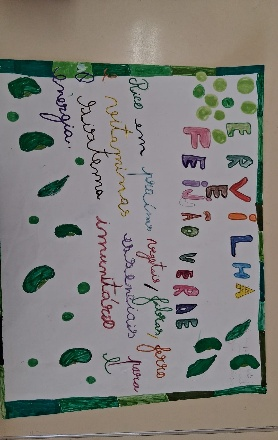 ERVILHA
E
FEIJÃO VERDE
Rico em proteína vegetal, fibras, ferro
e vitaminas essenciais para
o sistema imunitário e
energia.